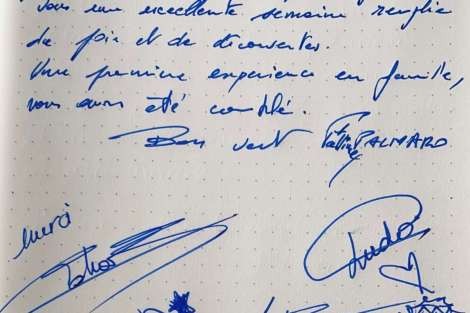 vous une excellente semaine remplie
de foix et de découvertes.
Une première expérience en famille,
nous avons été comblé.
Bon vent PALMARD
merci
Ludo